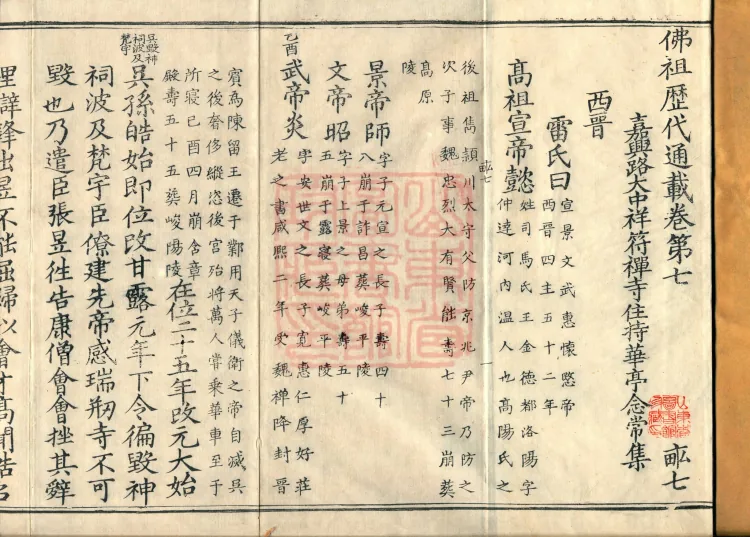 佛祖歷代通載卷第七 畝七
嘉興路大中祥符禪寺住持華亭念常集
西晉
雷氏曰
宣景文武惠懷愍帝
西晉四主五十二年
高祖宣帝懿
姓司馬氏王金德都洛陽字
仲達河內温人也高陽氏之
畝七
後祖雋頴川太守父防京兆尹帝乃防之
次子事魏忠烈大有賢能壽七十三崩葬
高原
陵
景帝師
字子元宣之長子壽四十
八崩于許昌葬峻平陵
文帝昭
字子上景之母弟壽五十
五崩于露寢葬峻平陵
乙酉
武帝炎
字安世文之長子寬惠仁厚好莊
老之書咸熙二年受魏禪降封晉
賓爲陳留王遷于鄴用天子儀衛之帝自滅吳
之後奢侈縱恣後宮殆將萬人嘗乘華車至于
所寢已酉四月崩含章
殿壽五十五葬峻陽陵
在位二十五年改元大始
吳毀神
祠波及
梵宇
吳孫皓始即位改甘露元年下令徧毀神
祠波及梵宇臣僚建先帝感瑞刱寺不可
毀也乃遣臣張昱徃告康僧會會挫其辭
鋒出昱不能屈歸以會才高聞皓召